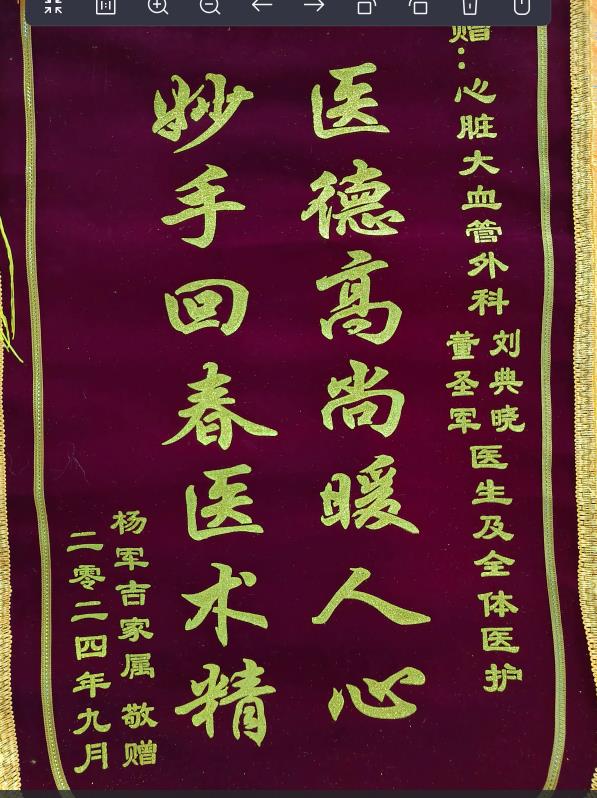 赠：心脏大血管外科
刘典晓
董圣军
医生及全体医护
医德高尚暖人心
妙手回春医术精
杨军吉家属 敬赠
二零二四年九月